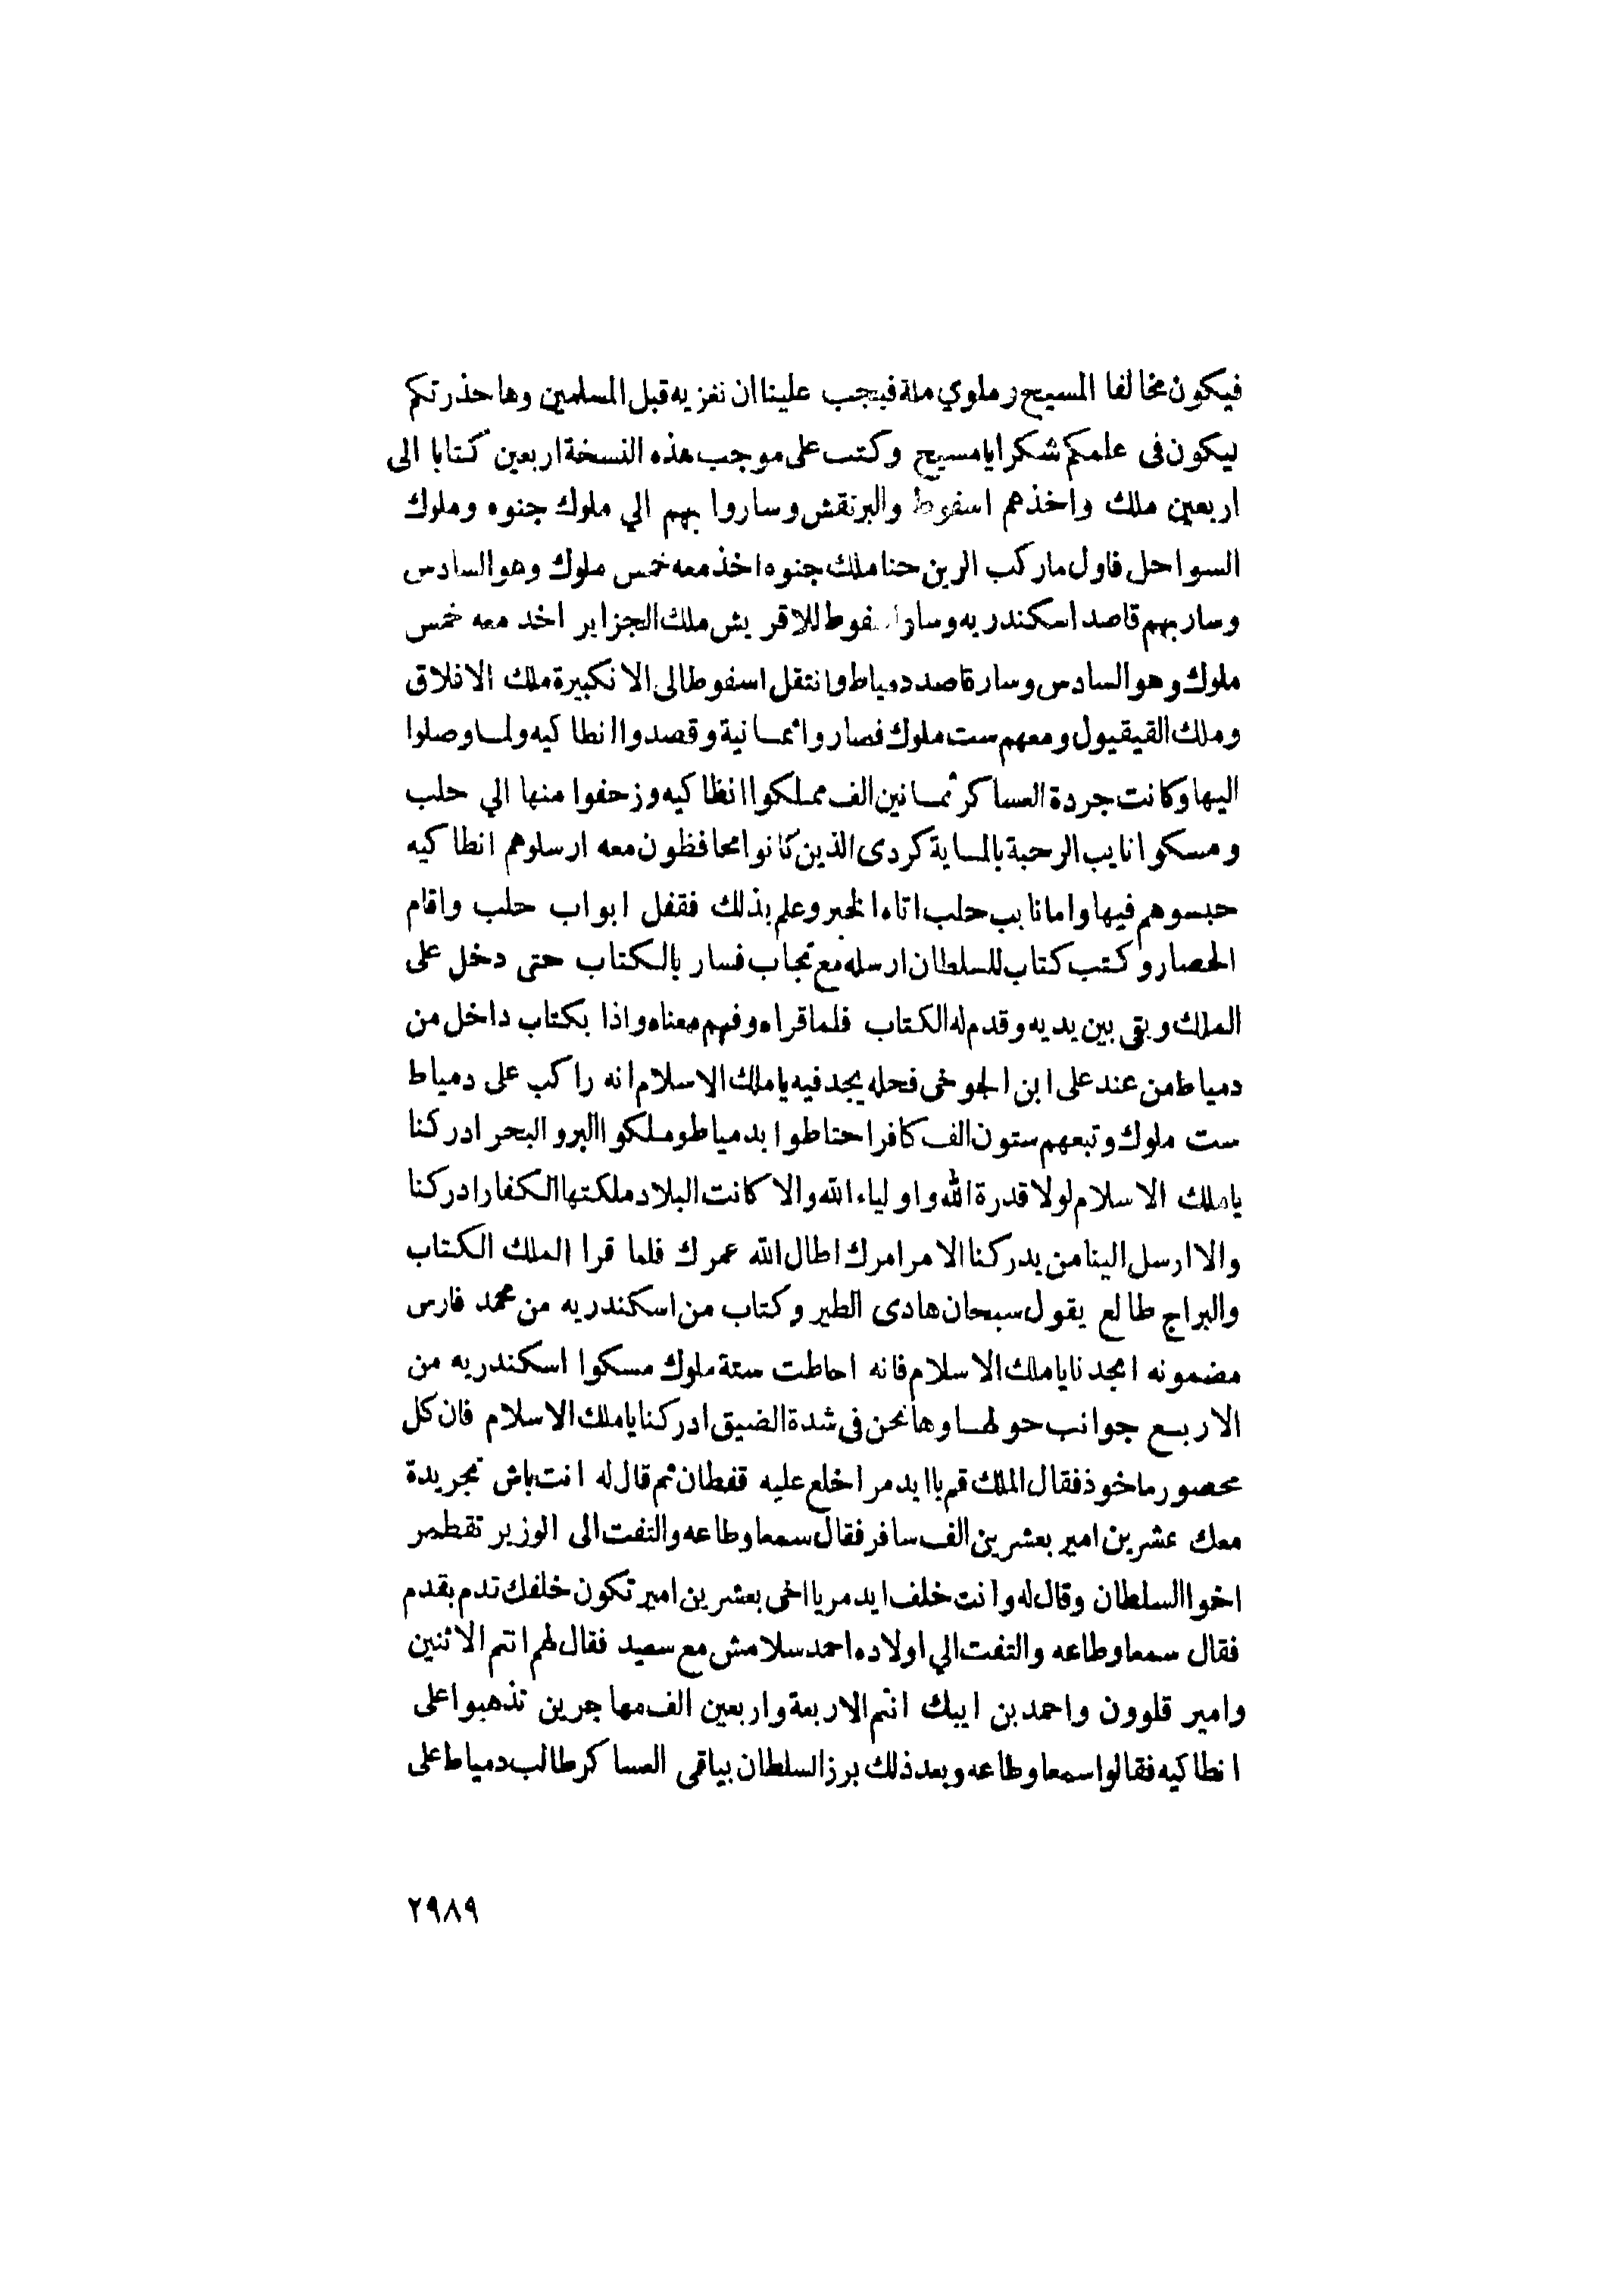 فيكون مخالفا المسيح رملوي ملة فيجب علينا ان نغزيه قبل المسلمين وها حذرتكم
ليكون فى علمكم شكرا يا مسيح وكتب على موجب هذه النسخة اربعين كتابا الى
اربعين ملك واخذهم اسفوط والبرنقش وساروا بهم الي ملوك جنوه وملوك
السواحل فاول ما ركب الرين حنا ملك جنوه اخذ معه خمس ملوك وهو السادس
وسار بهم قاصد اسكندريه وسار اسفوط للاقريش ملك الجزاير اخد معه خمس
ملوك وهو السادس وسار قاصد دمياط وانتقل اسفوط الى الانكبيرة ملك الافلاق
وملك القيقيول ومعهم ست ملوك فصاروا ثمانية وقصدوا انطاكيه ولما وصلوا
اليها وكانت جردة العساكر ثمانين الف مملكوا انظاكيه وزحفوا منها الي حلب
ومسكوا نايب الرحبة بالماية كردى الذين كانوا محافظون معه ارسلوهم انطاكيه
حبسوهم فيها واما نايب حلب اتاه الخبر وعلم بذلك فقفل ابواب حلب واقام
الحصار وكتب كتاب للسلطان ارسله مع نجاب فسار بالكتاب حتى دخل على
الملك وبقى بين يديه وقدم له الكتاب فلما قراه وفهم معناه واذا بكتاب داخل من
دمياط من عند على ابن الجوخى فحله يجد فيه يا ملك الاسلام انه راكب على دمياط
ست ملوك وتبعهم ستون الف كافر احتاطوا بدمياط وملكوا البر والبحر ادركنا
يا ملك الاسلام لولا قدرة الله واولياء الله والا كانت البلاد ملكتها الكفار ادركنا
والا ارسل الينا من يدركنا الامر امرك اطال الله عمرك فلما قرا الملك الكتاب
والبراج طالع يقول سبحان هادى الطير وكتاب من اسكندريه من محمد فارس
مضمونه انجدنا يا ملك الاسلام فانه احاطت ستة ملوك مسكوا اسكندريه من
الاربع جوانب حولها وها نحن فى شدة الضيق ادركنا يا ملك الاسلام فان كل
محصور ماخوذ فقال الملك قم يا ايدمر اخلع عليه قفطان ثم قال له انت باش تجريدة
معك عشرين امير بعشرين الف سافر فقال سمعا وطاعه والتفت الى الوزير تقطمر
اخوا السلطان وقال له وانت خلف ايدمر يا اخى بعشرين امير تكون خلفك تدم بقدم
فقال سمعا وطاعه والتفت الي اولاده احمد سلامش مع سعيد فقال لهم انتم الاثنين
وامير قلوون واحمد بن ايبك انتم الاربعة واربعين الف مهاجرين تذهبوا على
انطاكيه فقالوا سمعا وطاعه وبعد ذلك برز السلطان بياقى العساكر طالب دمياط على
٢٩٨٩